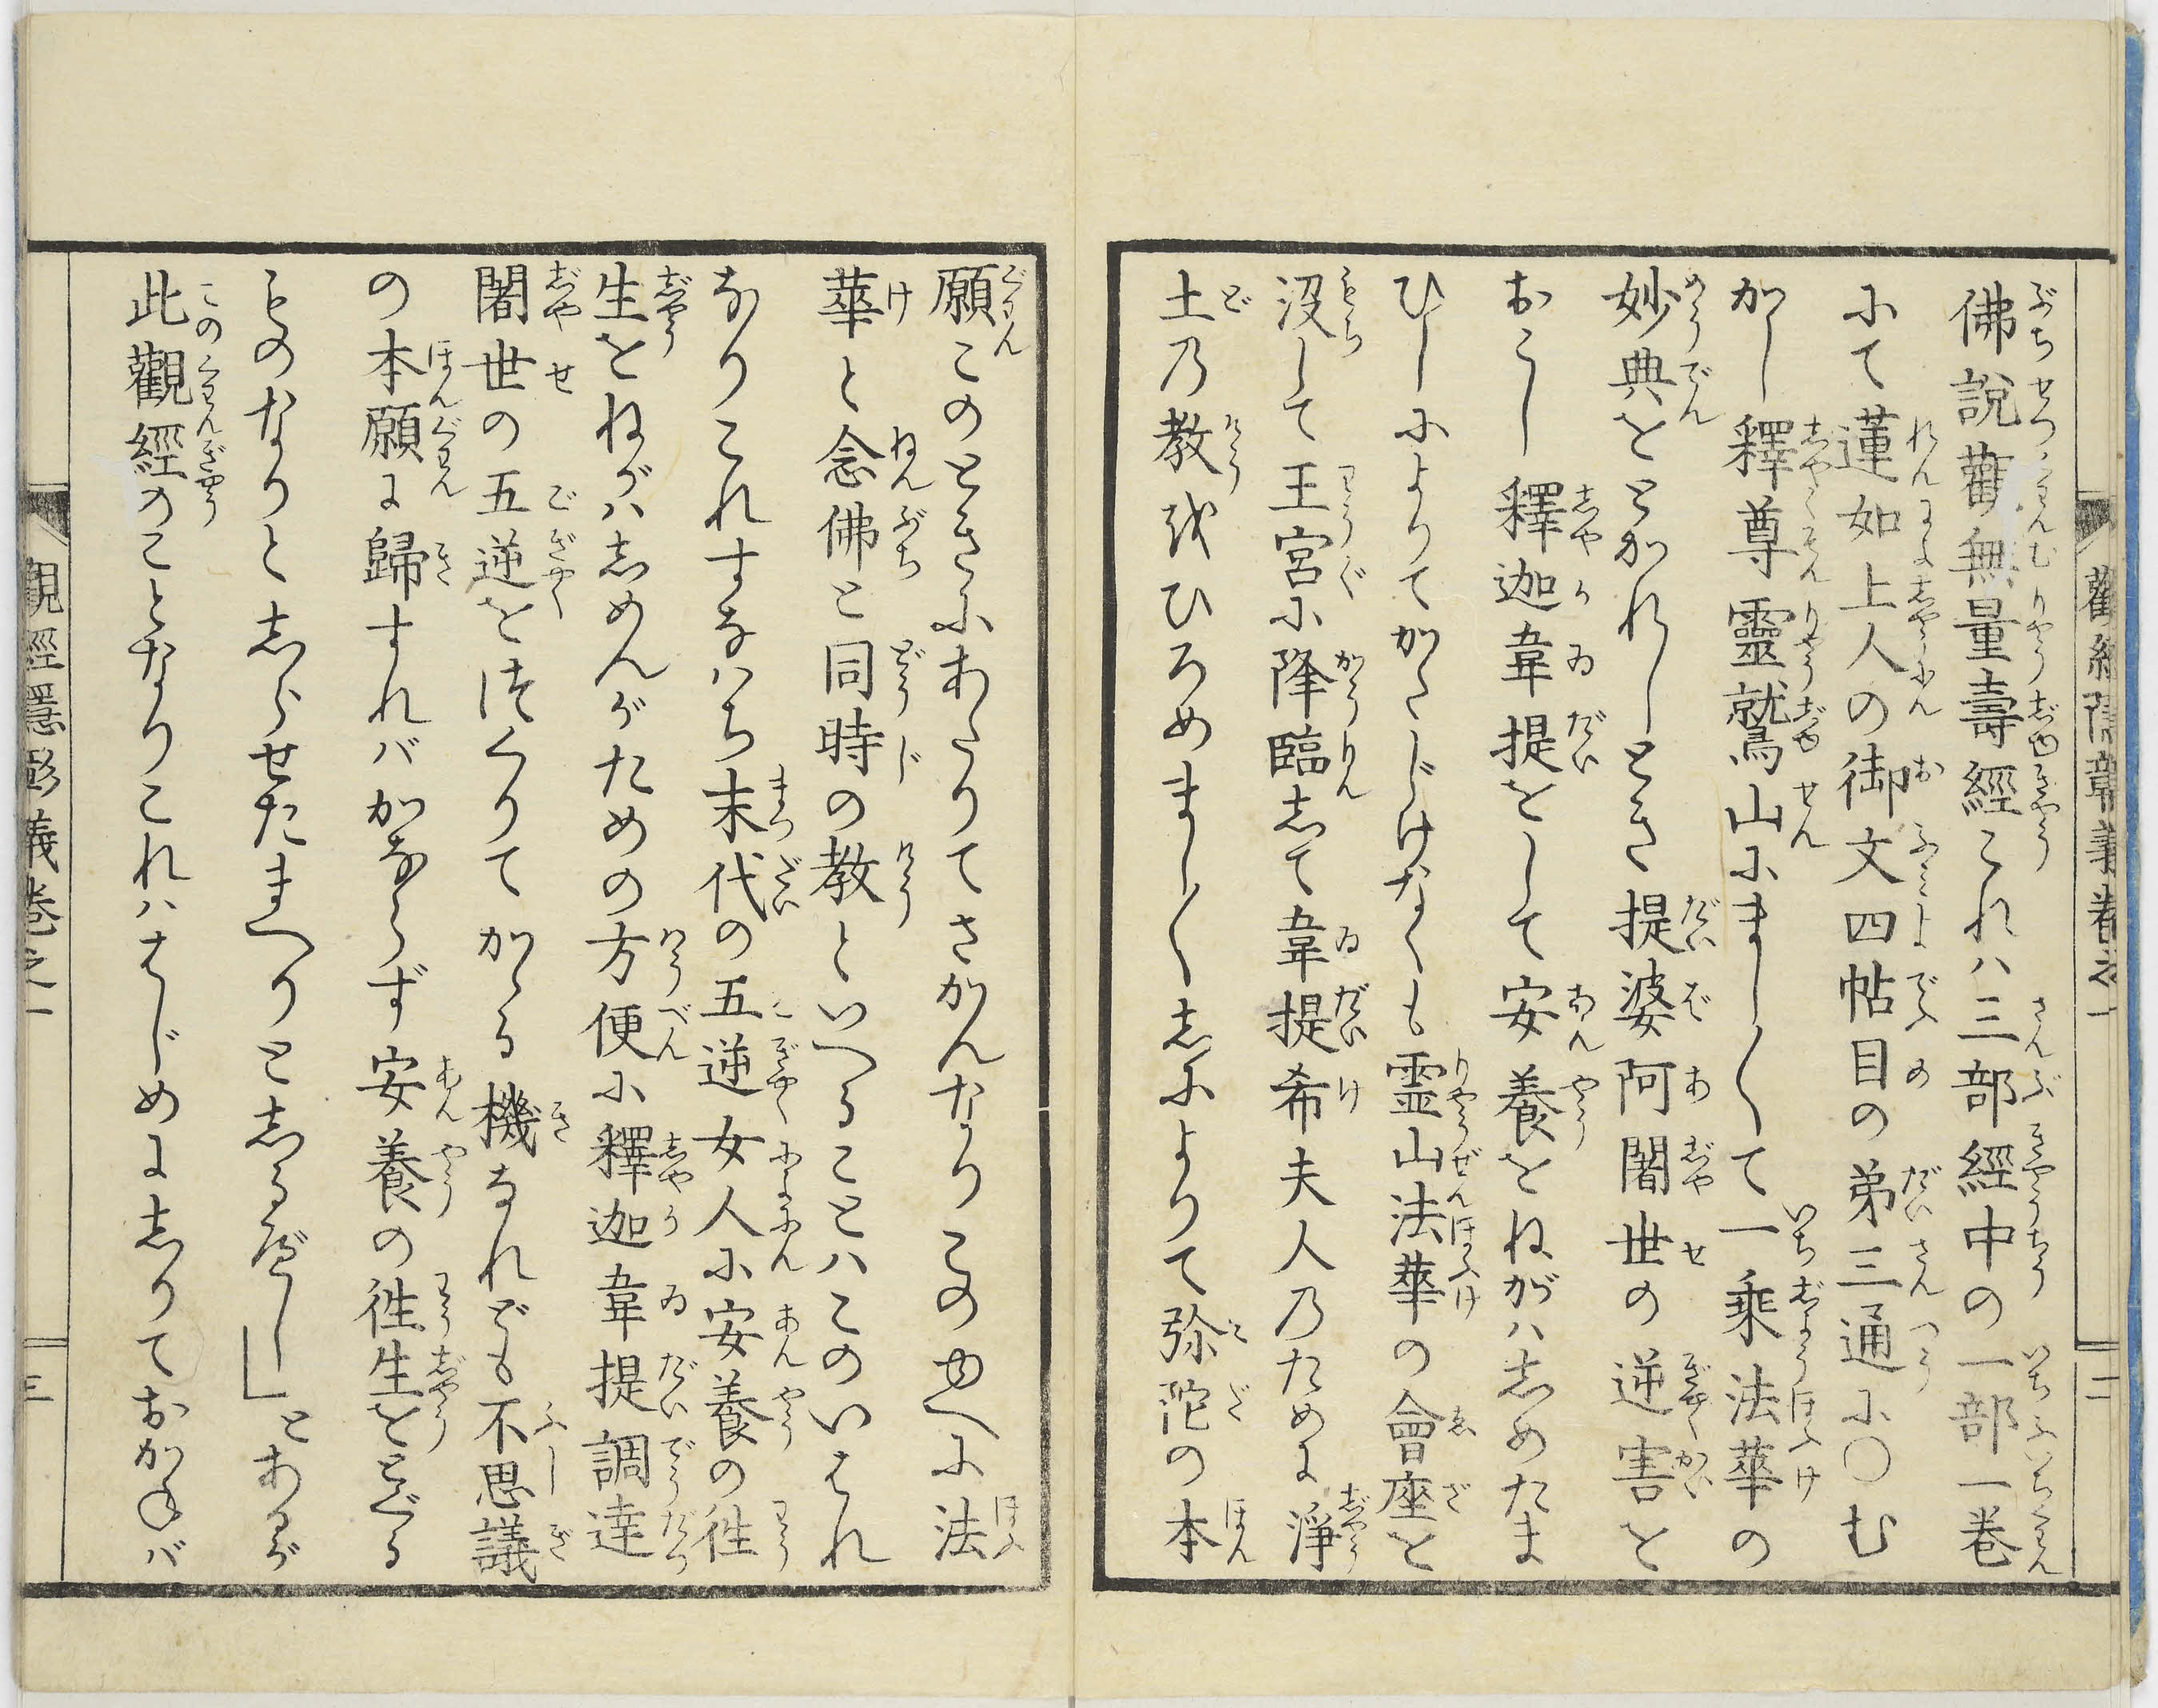 佛說觀無量壽經これハ三部經中の一部一巻
にて蓮如上人の御文四帖目の弟三通に〇む
かし釋尊靈鷲山にまし〳〵て一乘法華の
妙典をとかれしとき提婆阿闍世の逆害を
おこし釋迦韋提をして安養をねがハしめたま
ひしによりてかたじけなくも霊山法華の會座を
沒して王宮に降臨して韋提希夫人のために淨
土の教をひろめまし〳〵しによりて弥陀の本
願このときにあたりてさかんなりこのゆへに法
華と念佛と同時の教といへることハこのいはれ
なりこれすなハち末代の五逆女人に安養の徃
生をねがハしめんがための方便に釋迦韋提調達
闍世の五逆をつくりてかゝる機なれども不思議
の本願に歸すれバかならず安養の徃生をとぐる
ものなりとしらせたまへりとしるべし」とあるが
此觀經のことなりこれハはじめにしりておかねバ
觀經隱彰義卷之一
二
觀經隱彰義卷之一
三